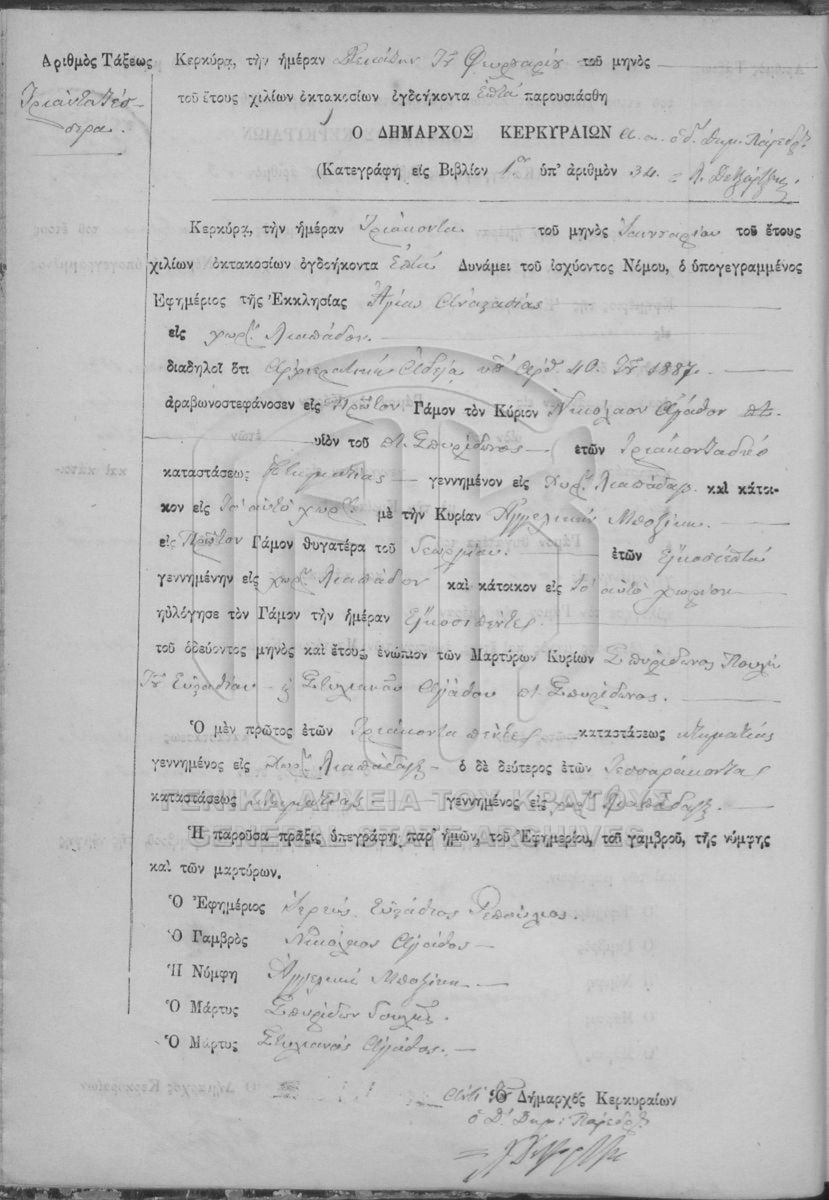 Ἀριθμὸς Τάξεως
Τριάντα τέσ-
σερα.
Κερκύρα, τὴν ἡμέραν Δεκάτην Τοῦ Φευρουαρίου τοῦ μηνὸς
τοῦ ἔτους χιλίων ὀκτακοσίων ὀγδοήκοντα ἑπτά παρουσιάσθη
Ο ΔΗΜΑΡΧΟΣ ΚΕΡΚΥΡΑΙΩΝ
(Κατεγράφη εἰς Βιβλίον 1ον ὑπ' ἀριθμὸν 34
Κερκύρα, τὴν ἡμέραν Τριάκοντα τοῦ μηνὸς Ἰαννουαρίου τοῦ ἔτους
χιλίων ὀκτακοσίων ὀγδοήκοντα Ἑπτά Δυνάμει τοῦ ἰσχύοντος Νόμου, ὁ ὑπογεγραμμένος
Ἐφημέριος τῆς Ἐκκλησίας Ἁγίας Ἀναστασίας
εἰς χωρ. Λιαπάδον.
διαδηλοῖ ὅτι Ἀρχιερατικὴ Ἀδεία ὑπ' ἀρθ. 40. Τοῦ 1887.
ἀραβωνοστεφάνοσεν εἰς Πρῶτον Γάμον τὸν Κύριον Νικόλαον Ἀγάθον
υἱὸν τοῦ Σπυρίδωνος ἐτῶν Τριάκοντα δύο
καταστάσεως Κτηματίας γεννημένον εἰς Χωρ. Λιαπάδαις καὶ κάτοι-
κον εἰς Το αὐτὸ χωρ. μὲ τὴν Κυρίαν Ἀγγελικὴν Μποζίκη.
εἰς Πρῶτον Γάμον θυγατέρα τοῦ Γεωργίου. ἐτῶν Εἴκοσι ἑπτά
γεννημένην εἰς χωρ. Λιαπάδον καὶ κάτοικον εἰς Το αὐτὸ χωρίον
ηὐλόγησε τὸν Γάμον τὴν ἡμέραν Εἴκοσι πέντε.
τοῦ ὁδεύοντος μηνὸς καὶ ἔτους, ἐνώπιον τῶν Μαρτύρων Κυρίων Σπυρίδωνος
Τοῦ Εὐσταθίου Στυλιανοῦ Ἀγάθου Σπυρίδωνος.
Ὁ μὲν πρῶτος ἐτῶν Τριάκοντα πέντε καταστάσεως κτηματίας
γεννημένος εἰς Χωρ. Λιαπάδαις ὁ δὲ δεύτερος ἐτῶν Τεσσαράκοντα
καταστάσεως κτηματίας γεννημένος εἰς χωρ. Λιαπάδαις
Ἡ παροῦσα πρᾶξις ὑπεγράφη παρ' ἡμῶν, τοῦ Ἐφημερίου, τοῦ γαμβροῦ, τῆς νύμφης
καὶ τῶν μαρτύρων.
Ὁ Ἐφημέριος Ἱερεύς Εὐστάθιος
Ὁ Γαμβρὸς Νικόλαος Ἀγάθος
Ἡ Νύμφη Ἀγγελικὴ Μποζίκη
Ὁ Μάρτυς Σπυρίδων
Ὁ Μάρτυς Στυλιανὸς Ἀγάθος.
Ὁ Δήμαρχος Κερκυραίων
ὁ Δ' Δημ. Πάρεδρος
ΓΕΝΙΚΑ ΑΡΧΕΙΑ ΤΟΥ ΚΡΑΤΟΥΣ
GENERAL STATE ARCHIVES